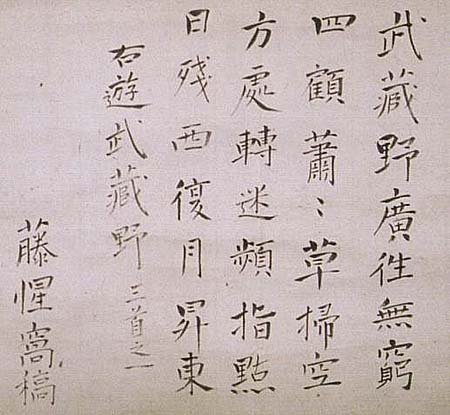 武蔵野廣徃無窮
四顧蕭〻草掃空
方處轉迷頻指點
日殘西復月昇東
右遊武蔵野 三首之一
藤惺窩稿